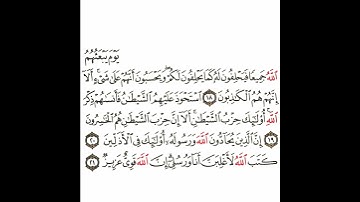 يَوْمَ يَبْعَثُهُمُ
ٱللَّهُ جَمِيعًا فَيَحْلِفُونَ لَهُۥ كَمَا يَحْلِفُونَ لَكُمْ وَيَحْسَبُونَ أَنَّهُمْ عَلَىٰ شَىْءٍ أَلَآ
إِنَّهُمْ هُمُ ٱلْكَٰذِبُونَ ١٨ ٱسْتَحْوَذَ عَلَيْهِمُ ٱلشَّيْطَٰنُ فَأَنسَىٰهُمْ ذِكْرَ
ٱللَّهِ أُو۟لَٰٓئِكَ حِزْبُ ٱلشَّيْطَٰنِ أَلَآ إِنَّ حِزْبَ ٱلشَّيْطَٰنِ هُمُ ٱلْخَٰسِرُونَ
١٩ إِنَّ ٱلَّذِينَ يُحَآدُّونَ ٱللَّهَ وَرَسُولَهُۥٓ أُو۟لَٰٓئِكَ فِى ٱلْأَذَلِّينَ ٢٠
كَتَبَ ٱللَّهُ لَأَغْلِبَنَّ أَنَا۠ وَرُسُلِىٓ إِنَّ ٱللَّهَ قَوِىٌّ عَزِيزٌ ٢١